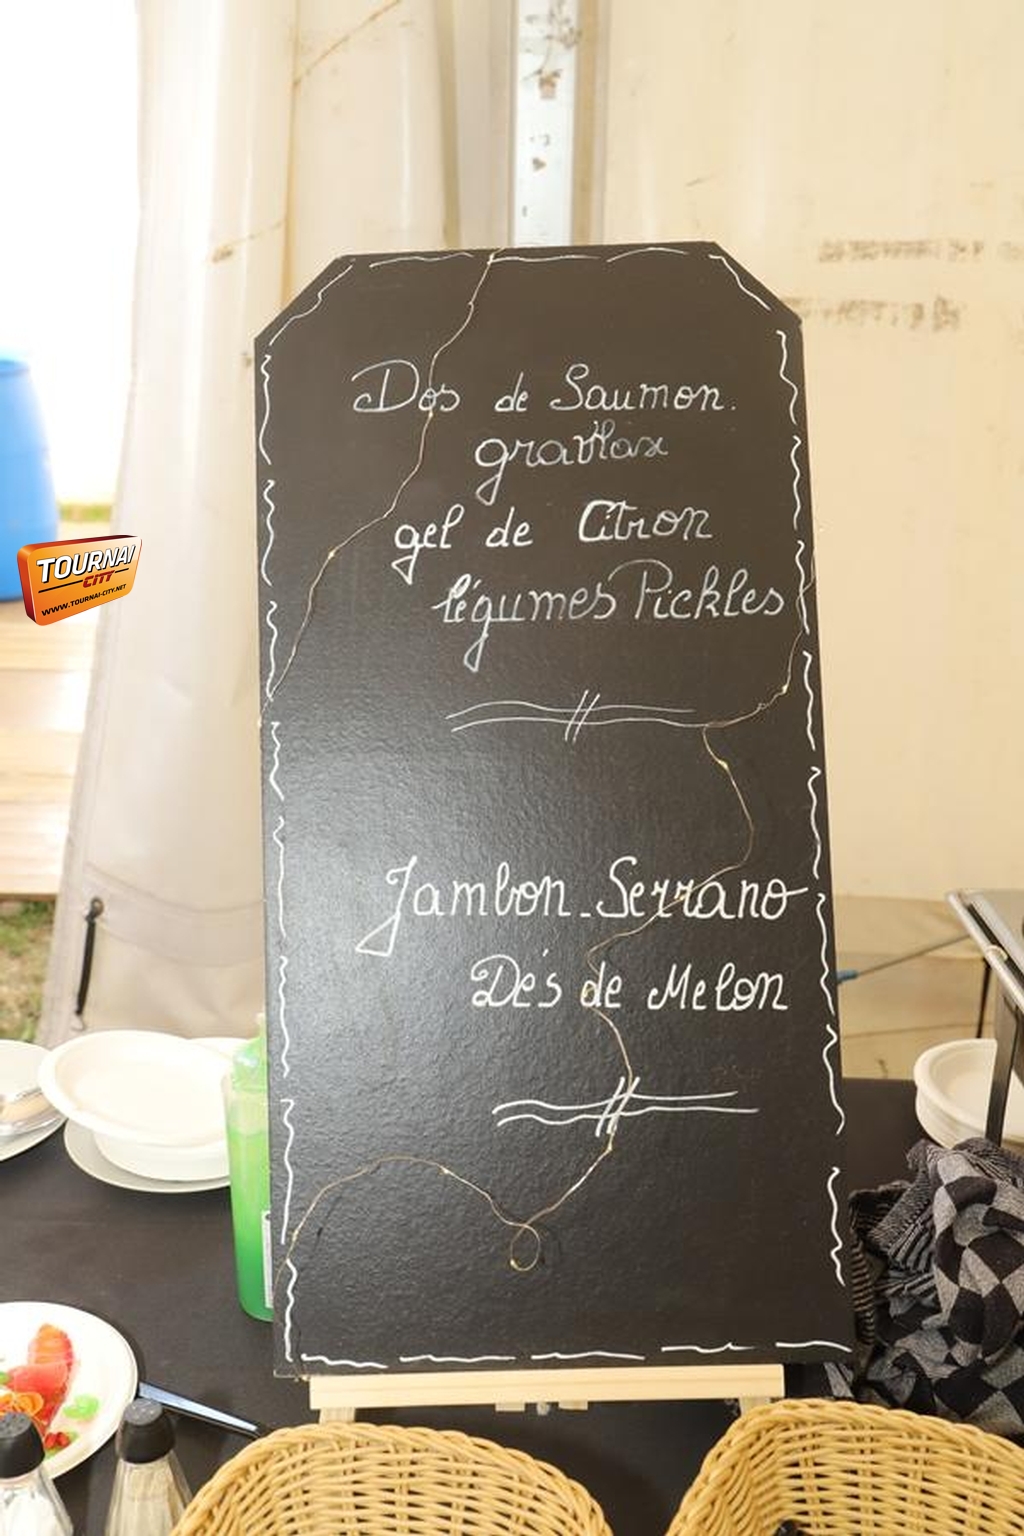 Dos de Saumon.
gravlax
gel de Citron
légumes Pickles
Jambon-Serrano
Dés de Melon
TOURNAI
CITY
WWW.TOURNAI-CITY.NET